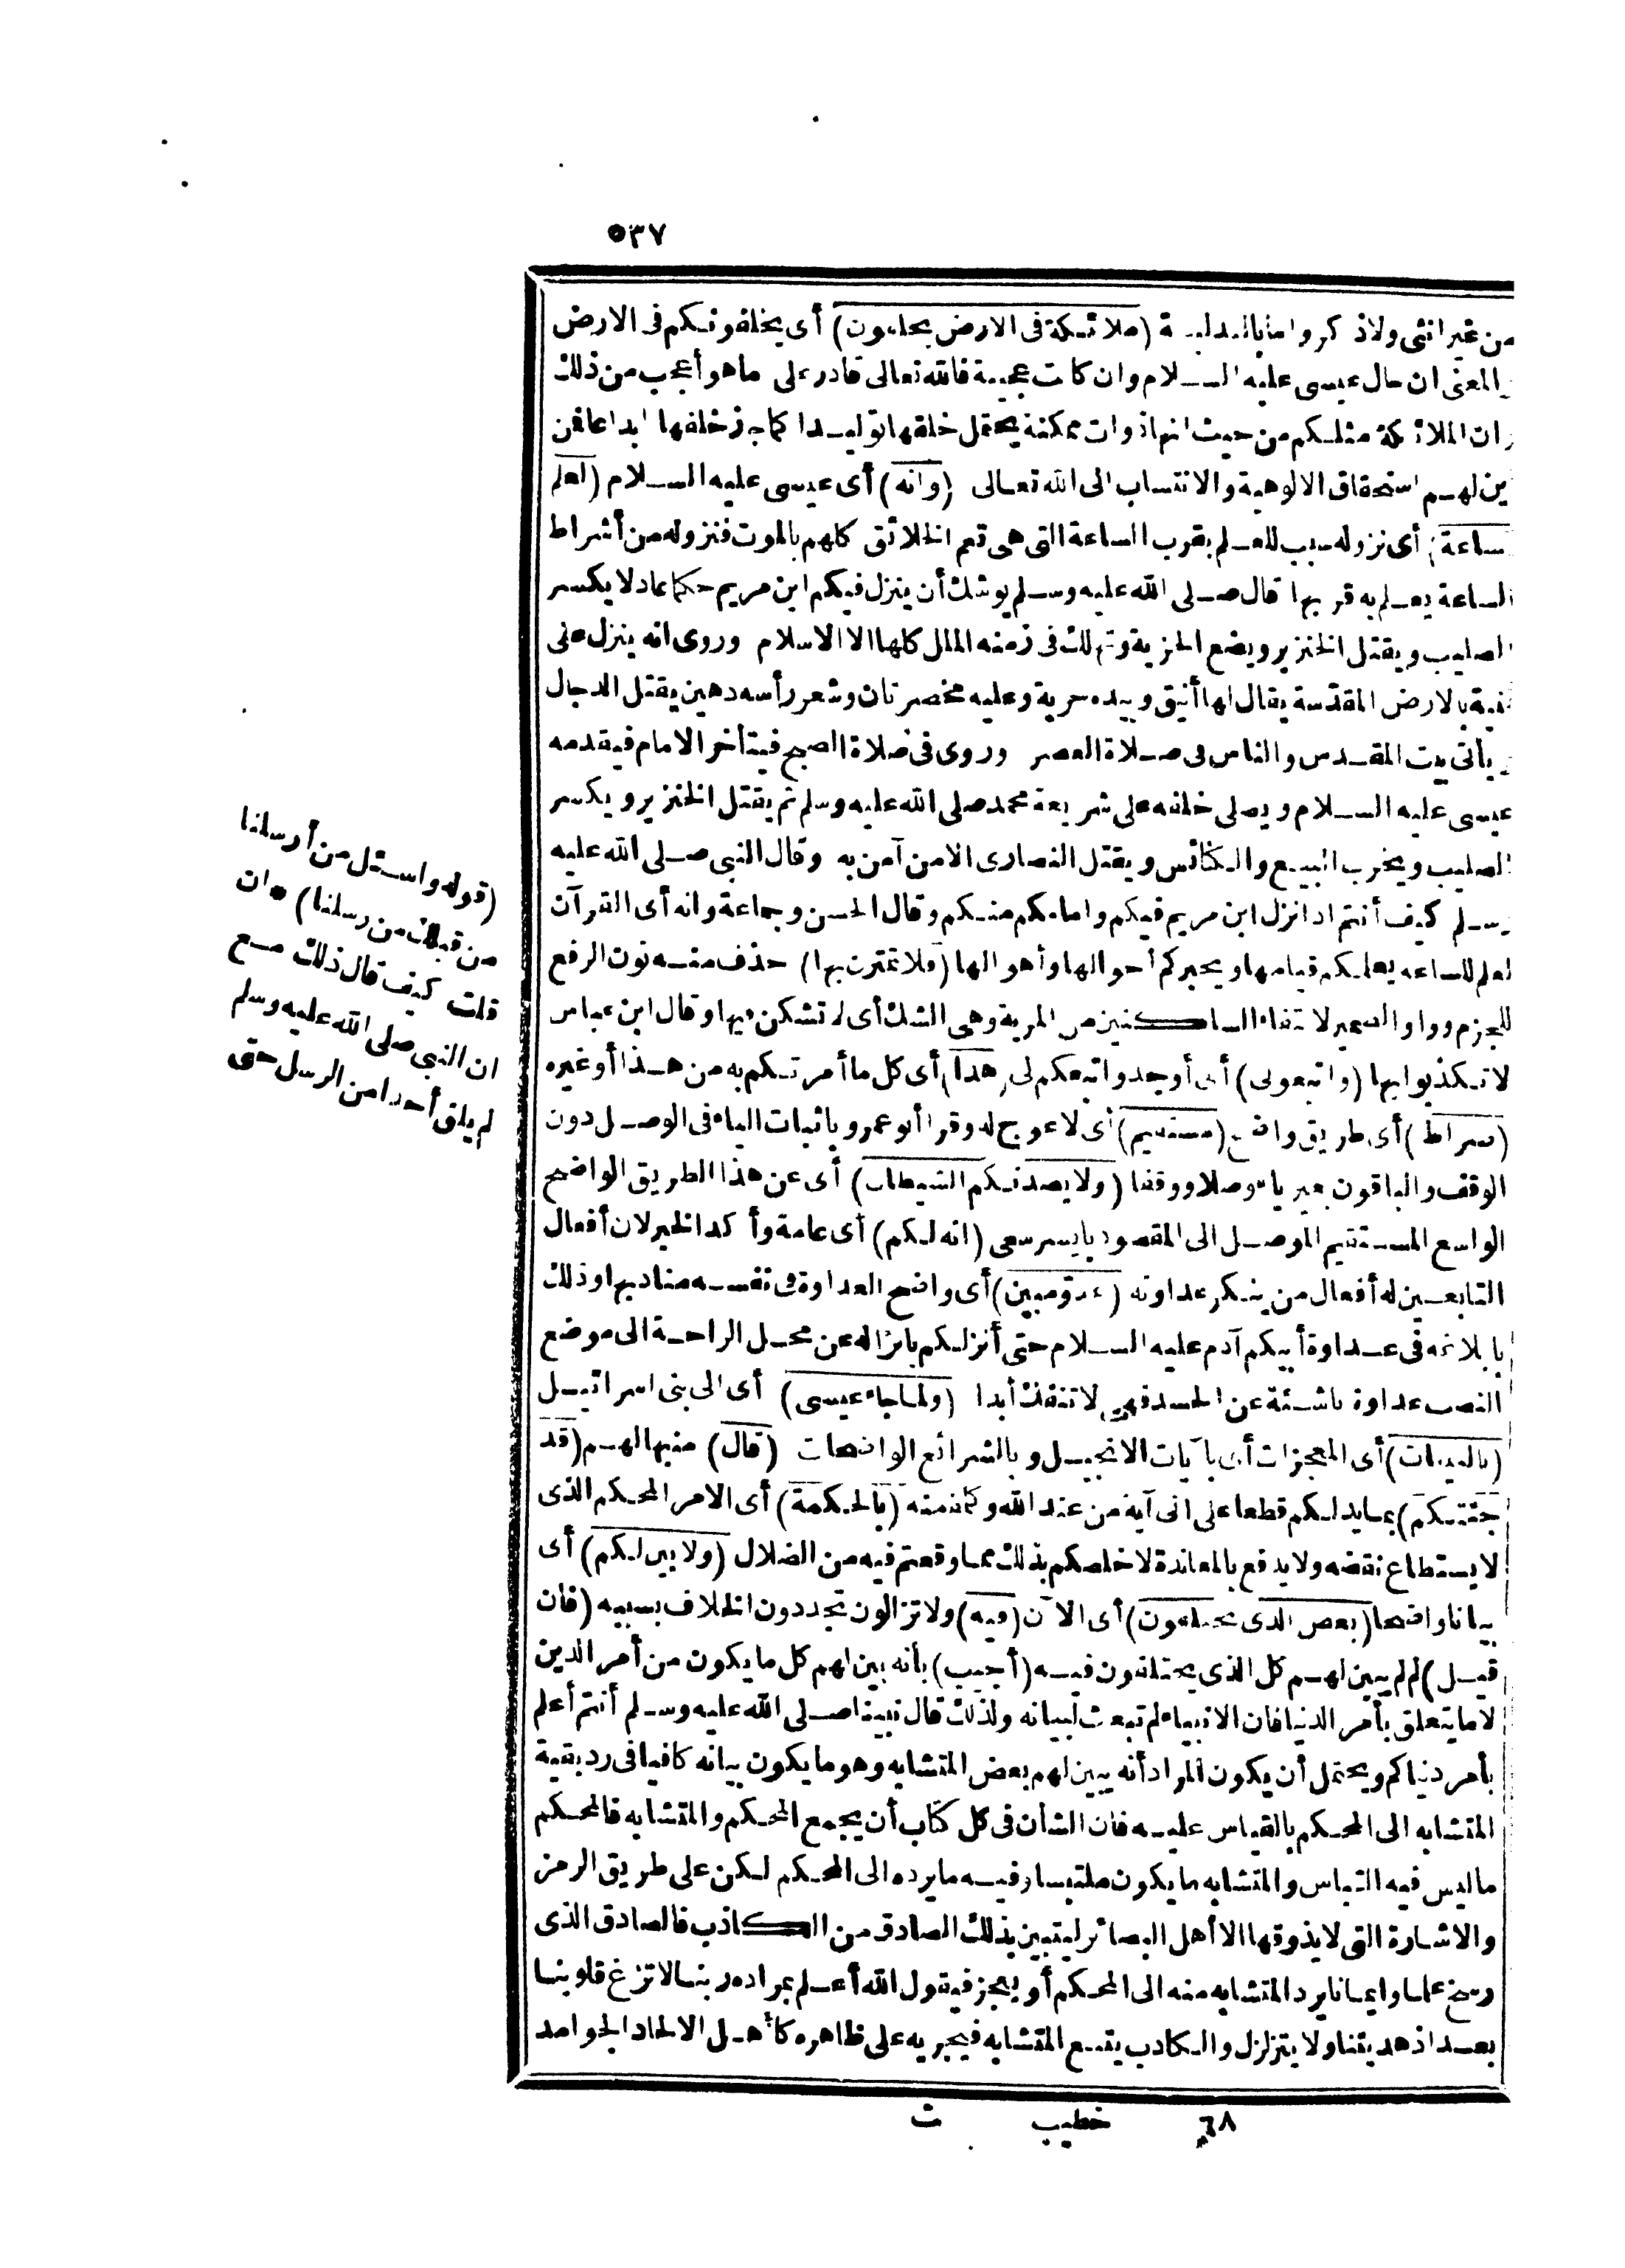 ٥٣٧
من غير انثى ولا ذكر واما بالبداية (ملائكة فى الارض يخلفون) أى يخلفونكم فى الارض
والمعنى ان حال عيسى عليه السلام وان كانت عجيبة فالله تعالى قادر على ما هو أعجب من ذلك
وان الملائكة مثلكم من حيث انها ذوات ممكنة يحتمل خلقها توليدا كما جاز خلقها ابداعا فمن
أين لهم استحقاق الالوهية والانتساب الى الله تعالى (وانه) أى عيسى عليه السلام (لعلم
للساعة) أى نزوله سبب للعلم بقرب الساعة التى هى تعم الخلائق كلهم بالموت فنزوله من أشراط
الساعة يعلم به قربها قال صلى الله عليه وسلم يوشك أن ينزل فيكم ابن مريم حكما عادلا يكسر
الصليب ويقتل الخنزير ويضع الجزية وتهلك فى زمنه الملل كلها الا الاسلام وروى انه ينزل على
ثنية بالارض المقدسة يقال لها أنيق وبيده حربة وعليه مخصرتان وشعر رأسه دهين يقتل الدجال
ويأتى بيت المقدس والناس فى صلاة العصر وروى فى صلاة الصبح فيتأخر الامام فيقدمه
عيسى عليه السلام ويصلى خلفه على شريعة محمد صلى الله عليه وسلم ثم يقتل الخنزير ويكسر
الصليب ويخرب البيع والكنائس ويقتل النصارى الا من آمن به وقال النبى صلى الله عليه
وسلم كيف أنتم اذا نزل ابن مريم فيكم وامامكم منكم وقال الحسن وجماعة وانه أى القرآن
لعلم للساعة يعلمكم قيامها ويخبركم أحوالها وأهوالها (فلا تمترن بها) حذف منه نون الرفع
للجزم وواو الضمير لالتقاء الساكنين من المرية وهى الشك أى لا تشكن فيها وقال ابن عباس
لا تكذبوا بها (واتبعونى) أى أوجدوا تبعكم لى (هذا) أى كل ما أمرتكم به من هذا أو غيره
(صراط) أى طريق واضح (مستقيم) أى لا عوج له وقرأ أبو عمرو باثبات الياء فى الوصل دون
الوقف والباقون بغير ياء وصلا ووقفا (ولا يصدنكم الشيطان) أى عن هذا الطريق الواضح
الواسع المستقيم الموصل الى المقصود بايسر سعى (انه لكم) أى عامة وأكد الخبر لان أفعال
التابعين له أفعال من ينكر عداوته (عدوّ مبين) أى واضح العداوة فى نفسه مناديها وذلك
بابلاغه فى عداوة أبيكم آدم عليه السلام حتى أنزلكم بانزاله عن محل الراحة الى موضع
النصب عداوة ناشئة عن الحسد فهى لا تنفك أبدا (ولما جاء عيسى) أى الى بنى اسرائيل
(بالبينات) أى المعجزات أى بآيات الانجيل وبالشرائع الواضحات (قال) منبها لهم (قد
جئتكم) بما يدلكم قطعا على انى آية من عند الله وكلمة منه (بالحكمة) أى الامر المحكم الذى
لا يستطاع نقضه ولا يدفع بالمعاندة لاخلصكم بذلك مما وقعتم فيه من الضلال (ولابين لكم) أى
بيانا واضحا (بعض الذى تختلفون) أى الآن (فيه) ولا تزالون تجددون الخلاف بسببه (فان
قيل) لم لم يبين لهم كل الذى يختلفون فيه (أجيب) بأنه بين لهم كل ما يكون من أمر الدين
لا ما يتعلق بأمر الدنيا فان الانبياء لم تبعث لبيانه ولذلك قال نبينا صلى الله عليه وسلم أنتم أعلم
بأمر دنياكم ويحتمل أن يكون المراد أنه يبين لهم بعض المتشابه وهو ما يكون بيانه كافيا فى رد بقية
المتشابه الى المحكم بالقياس عليه فان الشأن فى كل كتاب أن يجمع المحكم والمتشابه فالمحكم
ما ليس فيه التباس والمتشابه ما يكون ملتبسا وفيه ما يرده الى المحكم لكن على طريق الرمز
والاشارة التى لا يذوقها الا أهل البصائر ليتبين بذلك الصادق من الكاذب فالصادق الذى
رسخ علما وايمانا يرد المتشابه منه الى المحكم أو يعجز فيقول الله أعلم بمراده ربنا لا تزغ قلوبنا
بعد اذ هديتنا ولا يتزلزل والكاذب يتبع المتشابه فيجريه على ظاهره كأهل الالحاد الجوامد
(قوله واسئل من أرسلنا
من قبلك من رسلنا) ان
قلت كيف قال ذلك مع
ان النبى صلى الله عليه وسلم
لم يلق أحدا من الرسل حتى
٦٨ خطيب ت